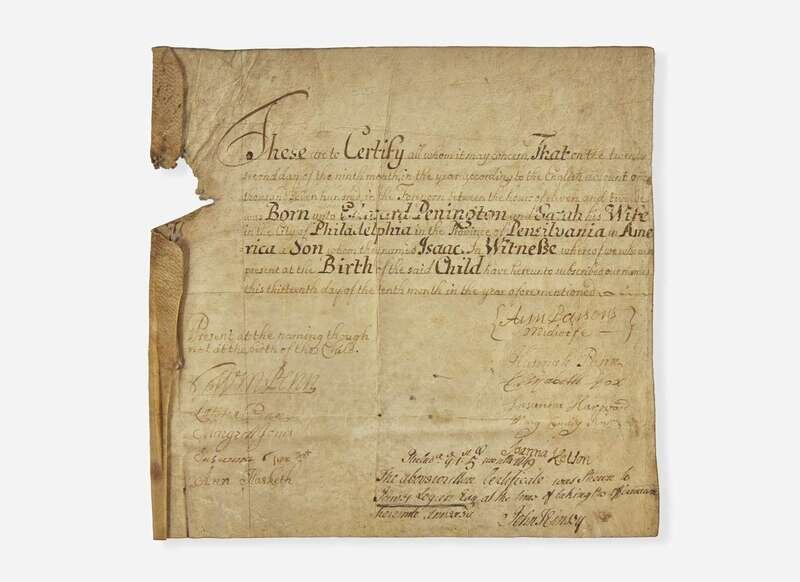 These are to Certify all whom it may concern, That on the twenty
second day of the ninth month, in the year according to the English account one
thousand seven hundred, in the Forenoon between the hours of eleven and twelve
was Born unto Edward Penington and Sarah his Wife
in the City of Philadelphia in the Province of Pensilvania in Ame
rica a Son whom they named Isaac. In Witneſse whereof we who were
present at the Birth of the said Child have hereunto subscribed our names
this thirteenth day of the tenth month in the year aforementioned
Ann Parsons
Midwife
Present at the naming though
not at the birth of this Child.
Wm Penn
Hannah Penn
Elizabeth Fox
Susanna Harwood
Ann Hasketh
Joanna
The above written Certificate was shewn to
Esqr at the time of taking the
John Kinsey